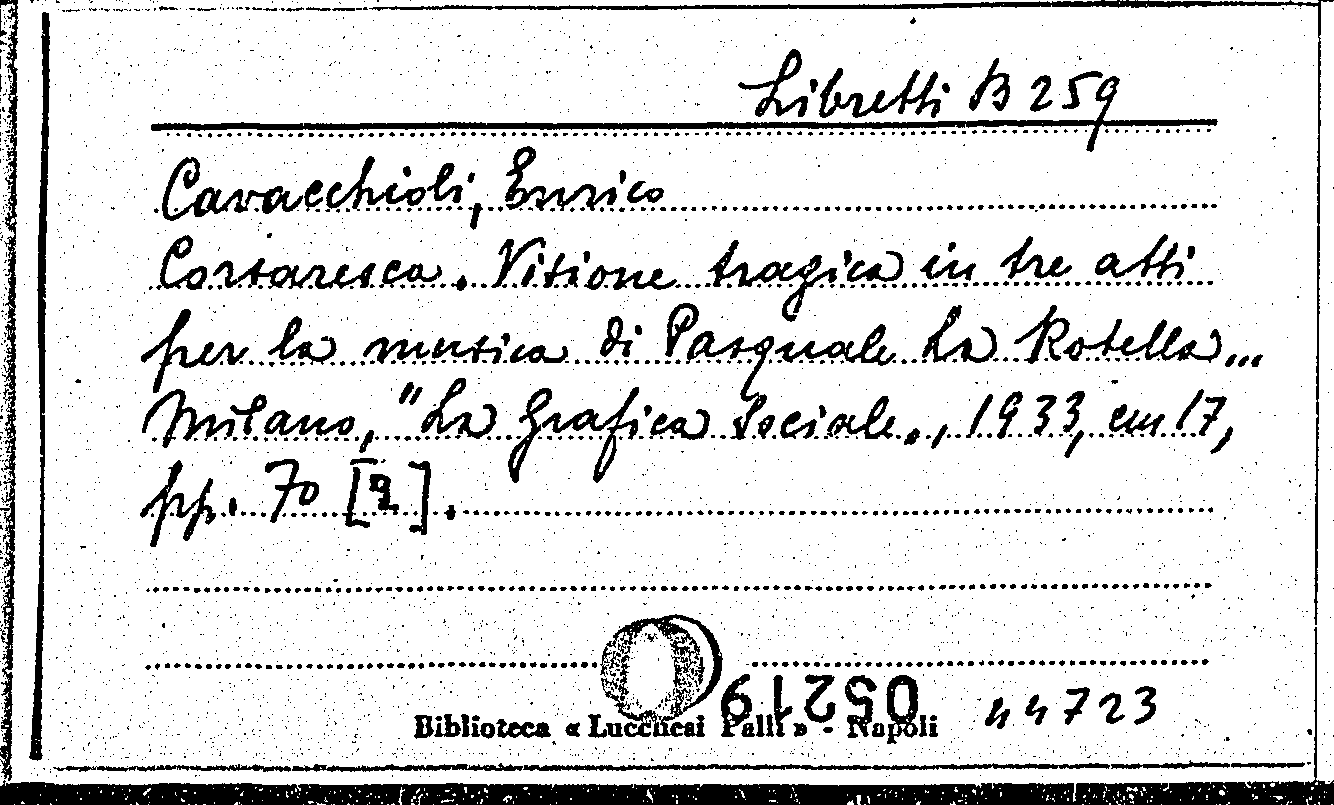 Libretti B 259
Cavacchioli, Enrico
Corsaresca. Visione tragica in tre atti
per la musica di Pasquale La Rotella...
Milano, "La Grafica Sociale„, 1933, cm 17,
pp. 70 [2].
05219
44723
Biblioteca « Lucchesi Palli » - Napoli